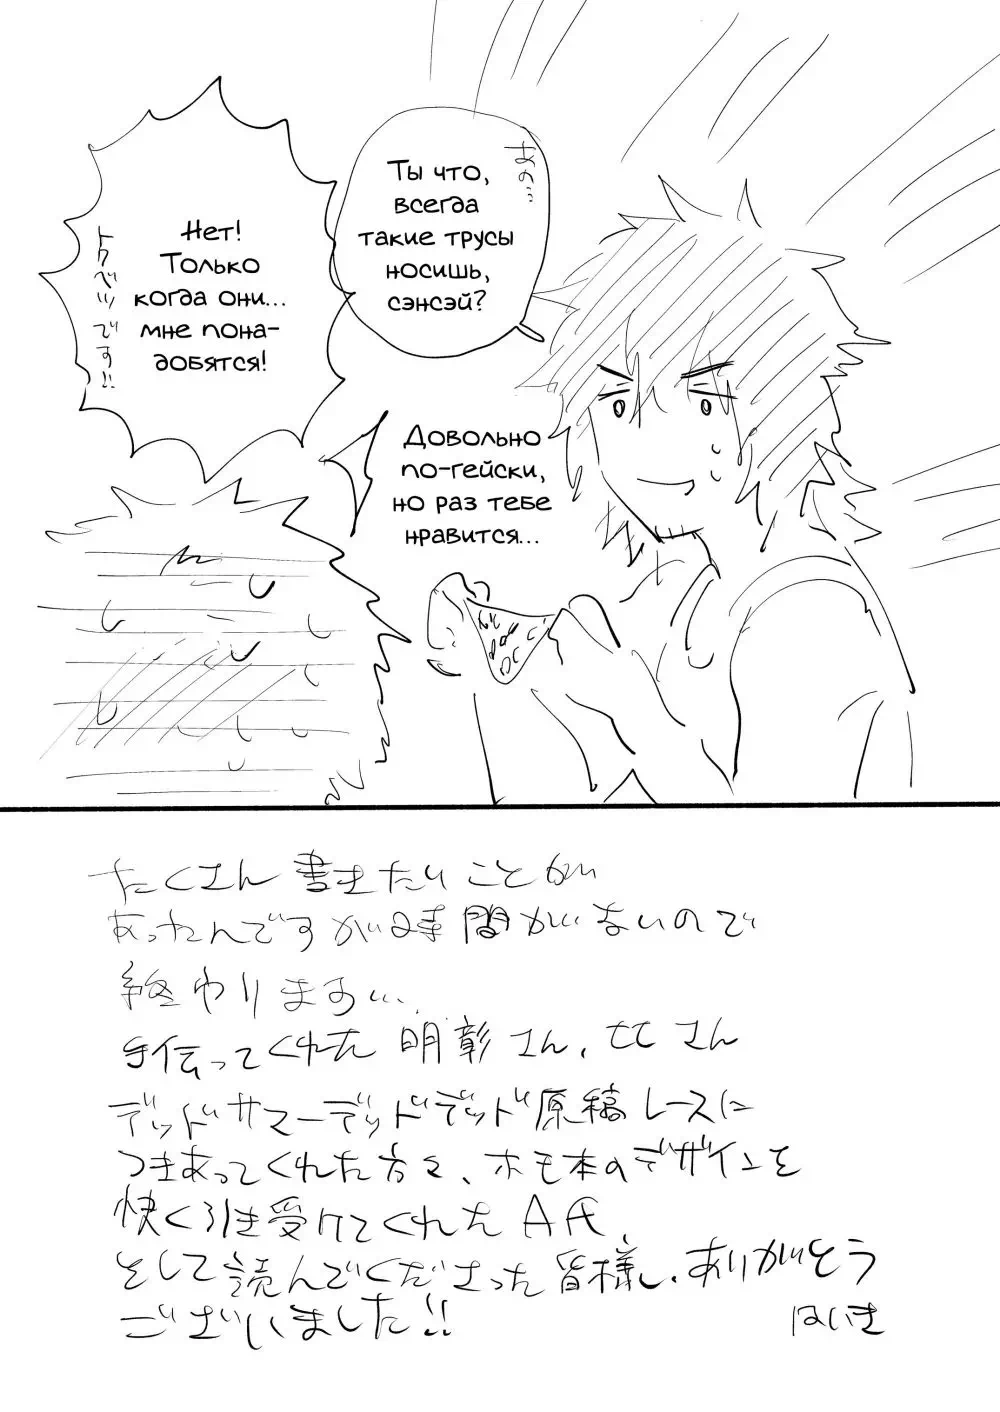 あの…
Ты что,
всегда
такие трусы
носишь,
сэнсэй?
Нет!
Только
когда они...
мне пона-
добятся!
トクベツです!!
Довольно
по-гейски,
но раз тебе
нравится...
たくさん書きたいことが
あったんですが時間がないので
終わります…
手伝ってくれた明彰さん、ヒヒさん
デッドサマーデッドデッド原稿レースに
つきあってくれた方々、ホモ本のデザインを
快く引き受けてくれたA氏、
そして読んでくださった皆様し、ありがとう
ございました!!
はいき